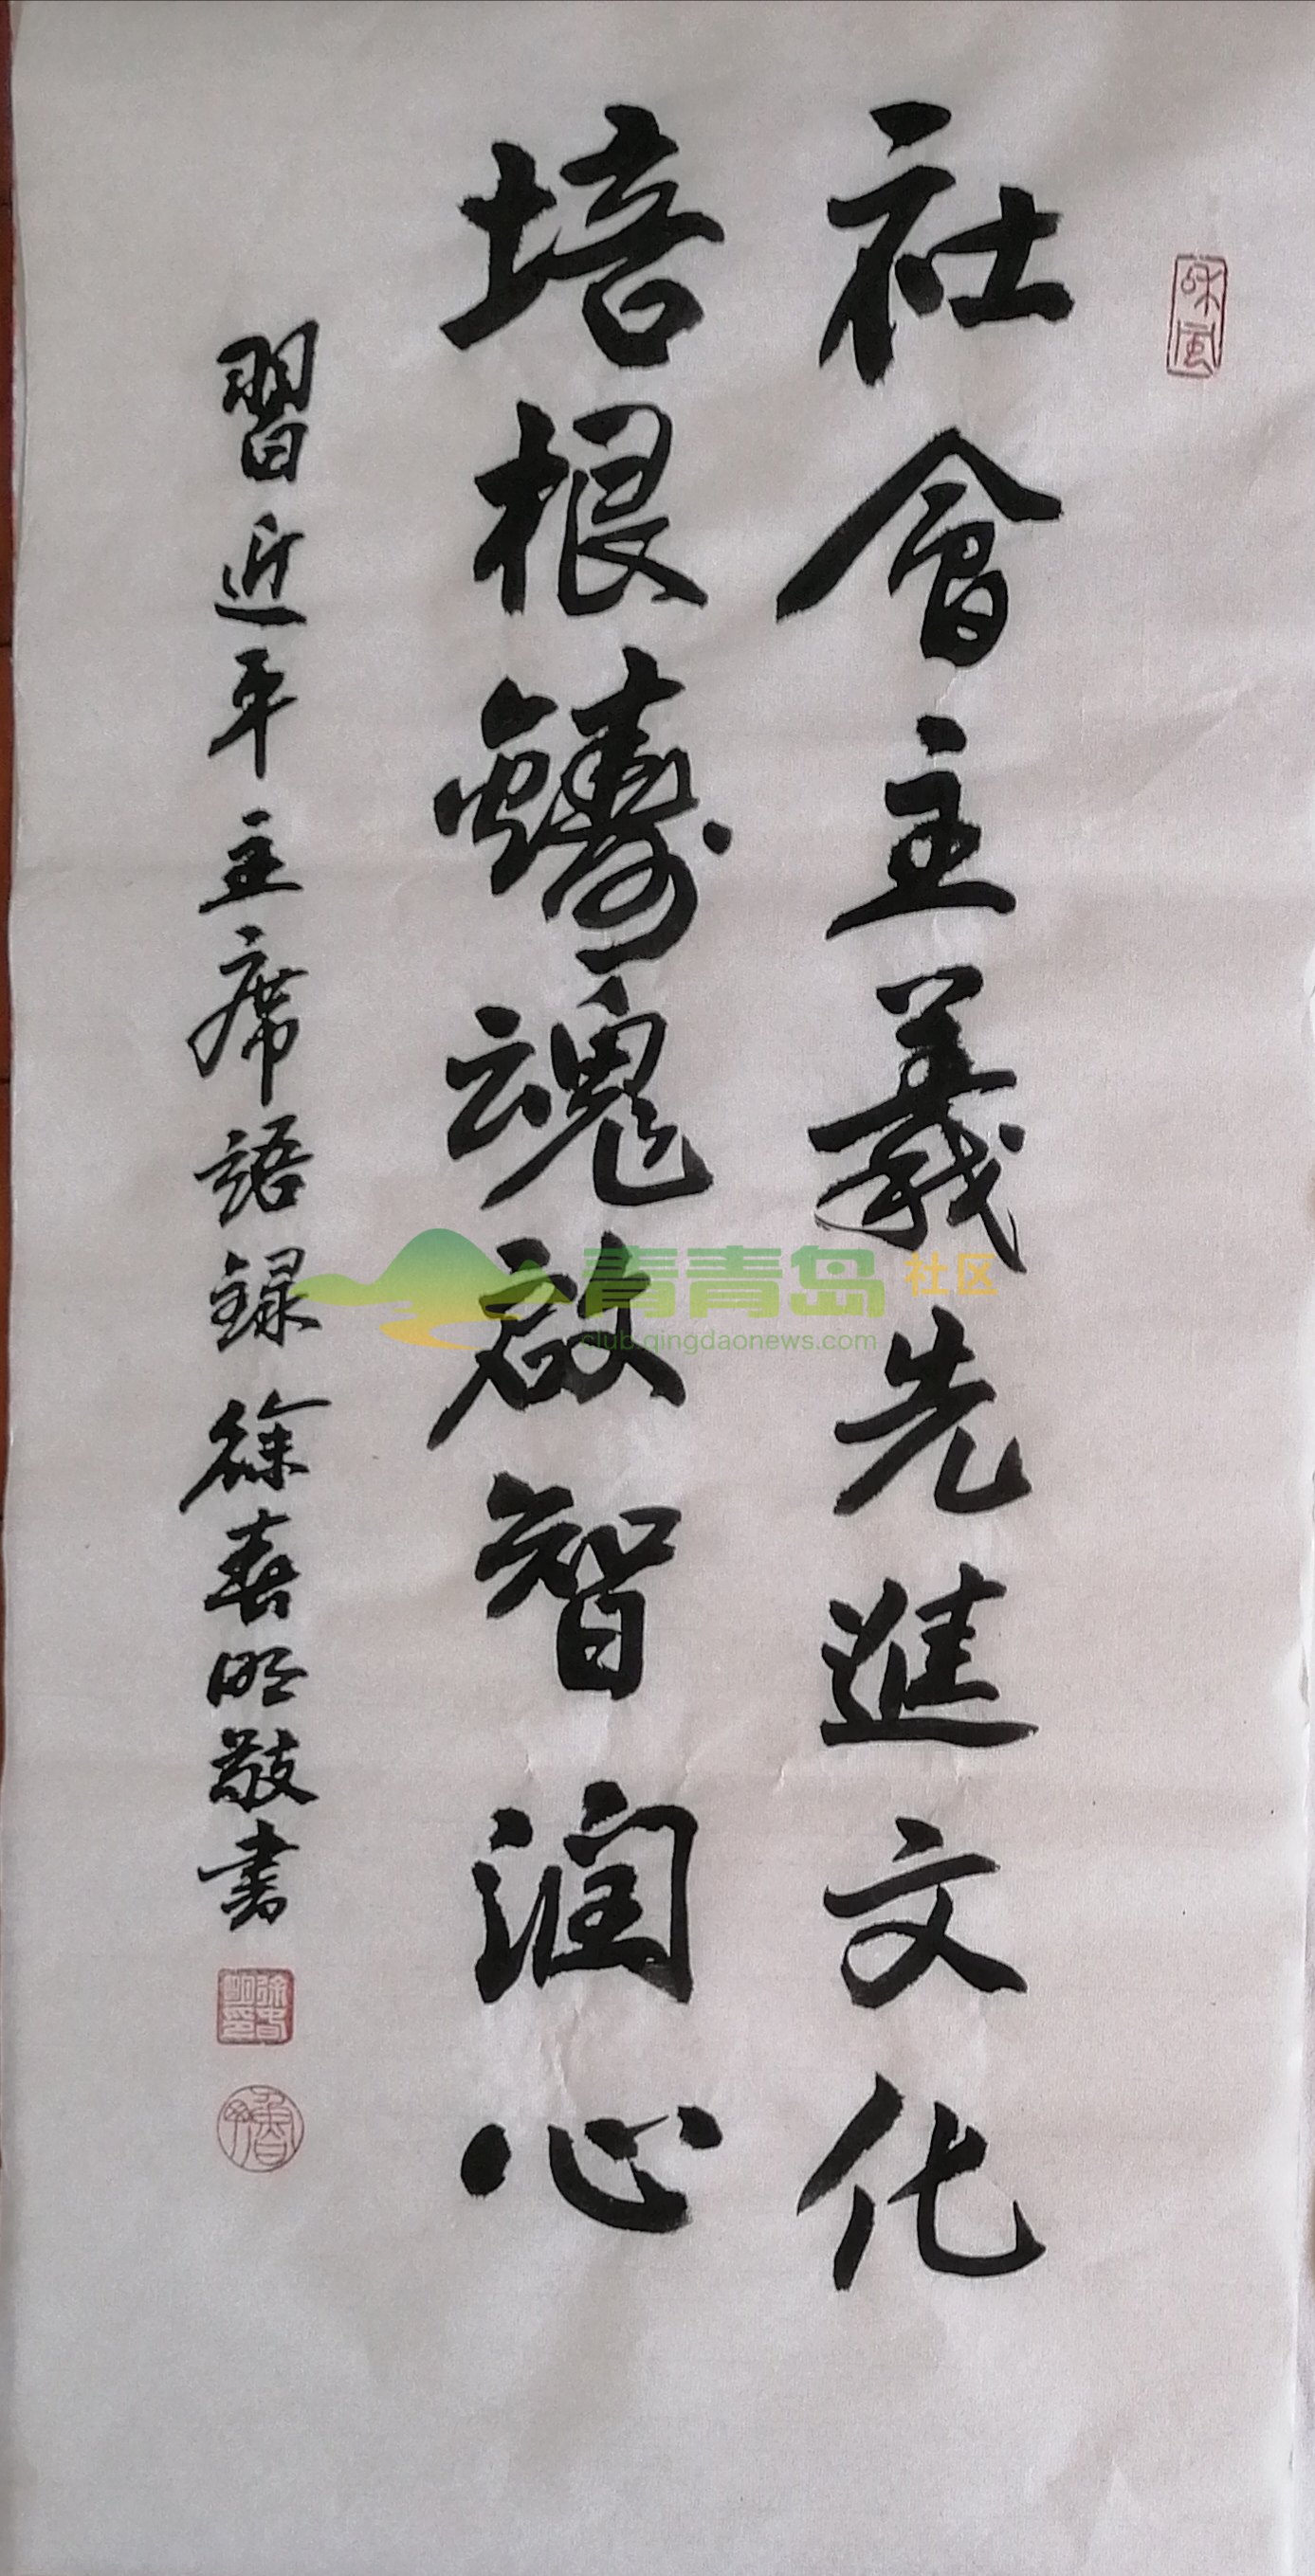 社會主義先進文化
培根鑄魂啟智潤心
習近平主席語録 徐春明敬書
和風
徐春明印
青青岛 社区
club.qingdaonews.com